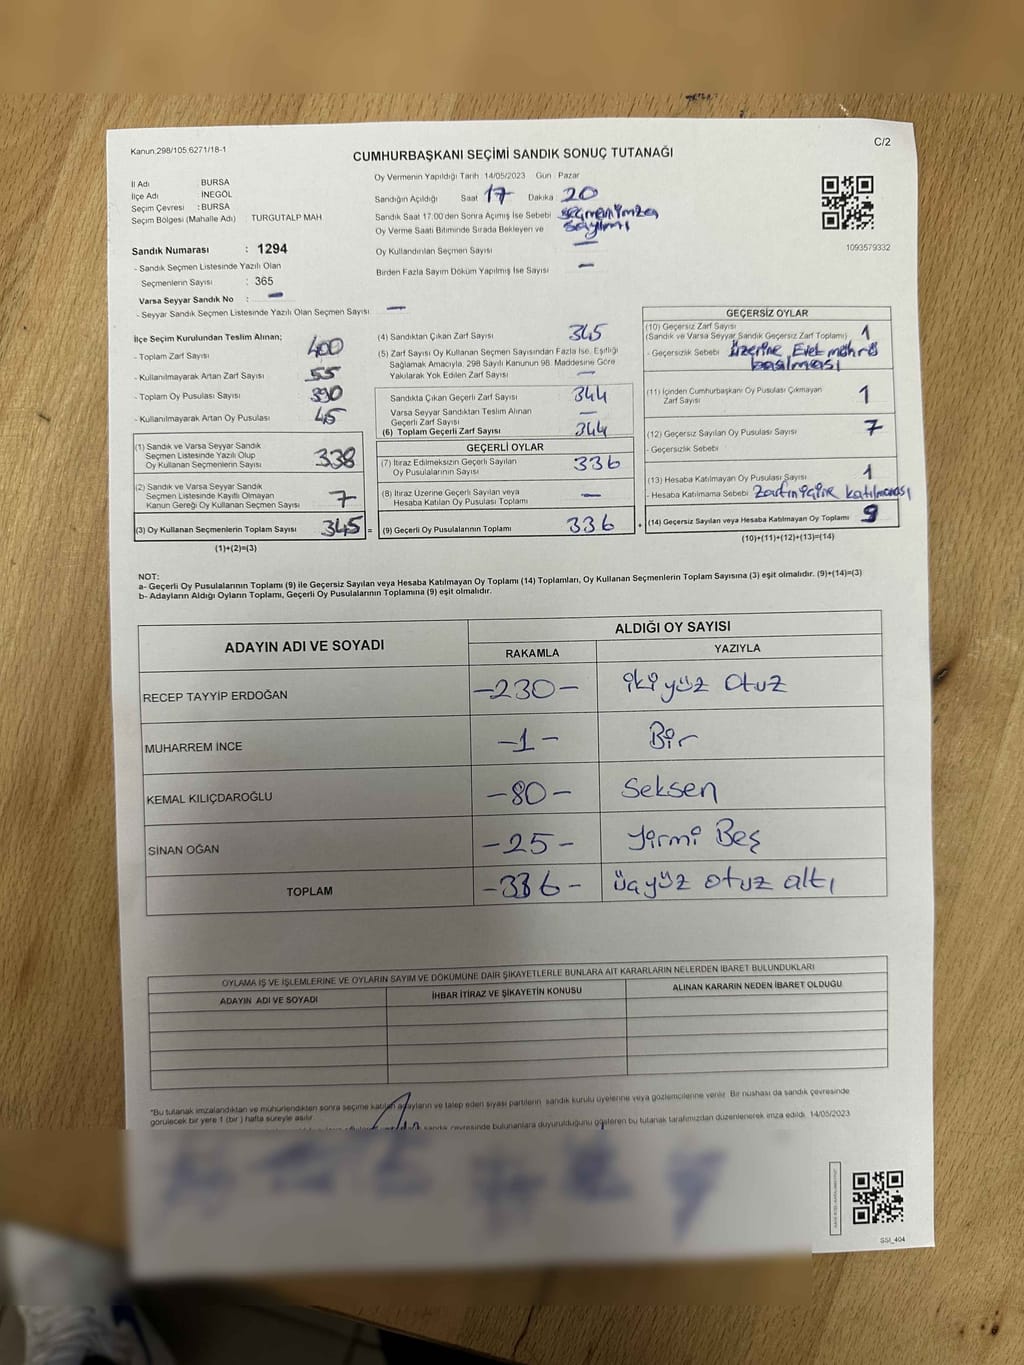 Kanun 298/105 6271/18-1
C/2
CUMHURBAŞKANI SEÇİMİ SANDIK SONUÇ TUTANAĞI
İl Adı : BURSA
İlçe Adı : İNEGÖL
Seçim Çevresi : BURSA
Seçim Bölgesi (Mahalle Adı) TURGUTALP MAH
Sandık Numarası : 1294
- Sandık Seçmen Listesinde Yazılı Olan
Seçmenlerin Sayısı : 365
Varsa Seyyar Sandık No : —
- Seyyar Sandık Seçmen Listesinde Yazılı Olan Seçmen Sayısı —
Oy Vermenin Yapıldığı Tarih 14/05/2023 Gün Pazar
Sandığın Açıldığı Saat 17 Dakika 20
Sandık Saat 17:00'den Sonra Açımış İse Sebebi
Oy Verme Saati Bitiminde Sırada Bekleyen ve
Oy Kullandırılan Seçmen Sayısı —
Birden Fazla Sayım Döküm Yapılmış İse Sayısı —
1093579332
İlçe Seçim Kurulundan Teslim Alınan;
- Toplam Zarf Sayısı 400
- Kullanılmayarak Artan Zarf Sayısı 55
- Toplam Oy Pusulası Sayısı 390
- Kullanılmayarak Artan Oy Pusulası 45
(1) Sandık ve Varsa Seyyar Sandık
Seçmen Listesinde Yazılı Olup
Oy Kullanan Seçmenlerin Sayısı 338
(2) Sandık ve Varsa Seyyar Sandık
Seçmen Listesinde Kayıtlı Olmayan
Kanun Gereği Oy Kullanan Seçmen Sayısı 7
(3) Oy Kullanan Seçmenlerin Toplam Sayısı 345 =
(1)+(2)=(3)
(4) Sandıktan Çıkan Zarf Sayısı 345
(5) Zarf Sayısı Oy Kullanan Seçmen Sayısından Fazla İse, Eşitliği
Sağlamak Amacıyla, 298 Sayılı Kanunun 98. Maddesine Göre
Yakılarak Yok Edilen Zarf Sayısı —
Sandıkta Çıkan Geçerli Zarf Sayısı 344
Varsa Seyyar Sandıktan Teslim Alınan
Geçerli Zarf Sayısı —
(6) Toplam Geçerli Zarf Sayısı 344
GEÇERLİ OYLAR
(7) İtiraz Edilmeksizin Geçerli Sayılan
Oy Pusulalarının Sayısı 336
(8) İtiraz Üzerine Geçerli Sayılan veya
Hesaba Katılan Oy Pusulaları Toplamı —
(9) Geçerli Oy Pusulalarının Toplamı 336 +
GEÇERSİZ OYLAR
(10) Geçersiz Zarf Sayısı
(Sandık ve Varsa Seyyar Sandık Geçersiz Zarf Toplamı) 1
- Geçersizlik Sebebi üzerine Evet mührü
basılması
(11) İçinden Cumhurbaşkanı Oy Pusulası Çıkmayan
Zarf Sayısı 1
(12) Geçersiz Sayılan Oy Pusulası Sayısı 7
- Geçersizlik Sebebi
(13) Hesaba Katılmayan Oy Pusulası Sayısı 1
- Hesaba Katılmama Sebebi Zarfın içine katılmaması
(14) Geçersiz Sayılan veya Hesaba Katılmayan Oy Toplamı 9
(10)+(11)+(12)+(13)=(14)
NOT:
a- Geçerli Oy Pusulalarının Toplamı (9) ile Geçersiz Sayılan veya Hesaba Katılmayan Oy Toplamı (14) Toplamları, Oy Kullanan Seçmenlerin Toplam Sayısına (3) eşit olmalıdır. (9)+(14)=(3)
b- Adayların Aldığı Oyların Toplamı, Geçerli Oy Pusulalarının Toplamına (9) eşit olmalıdır.
ADAYIN ADI VE SOYADI ALDIĞI OY SAYISI
RAKAMLA YAZIYLA
RECEP TAYYİP ERDOĞAN -230- iki yüz otuz
MUHARREM İNCE -1- Bir
KEMAL KILIÇDAROĞLU -80- Seksen
SİNAN OĞAN -25- Yirmi Beş
TOPLAM -336- üçyüz otuz altı
OYLAMA İŞ VE İŞLEMLERİNE VE OYLARIN SAYIM VE DÖKÜMÜNE DAİR ŞİKAYETLERLE BUNLARA AİT KARARLARIN NELERDEN İBARET BULUNDUKLARI
ADAYIN ADI VE SOYADI İHBAR İTİRAZ VE ŞİKAYETİN KONUSU ALINAN KARARIN NEDEN İBARET OLDUĞU
*Bu tutanak imzalandıktan ve mühürlendikten sonra seçime katılan adayların ve talep eden siyasi partilerin sandık kurulu üyelerine veya gözlemcilerine verilir. Bir nüshası da sandık çevresinde
görülecek bir yere 1 (bir) hafta süreyle asılır.
sandık çevresinde bulunanlara duyurulduğunu gösteren bu tutanak tarafımızdan düzenlenerek imza edildi. 14/05/2023
SSI_404